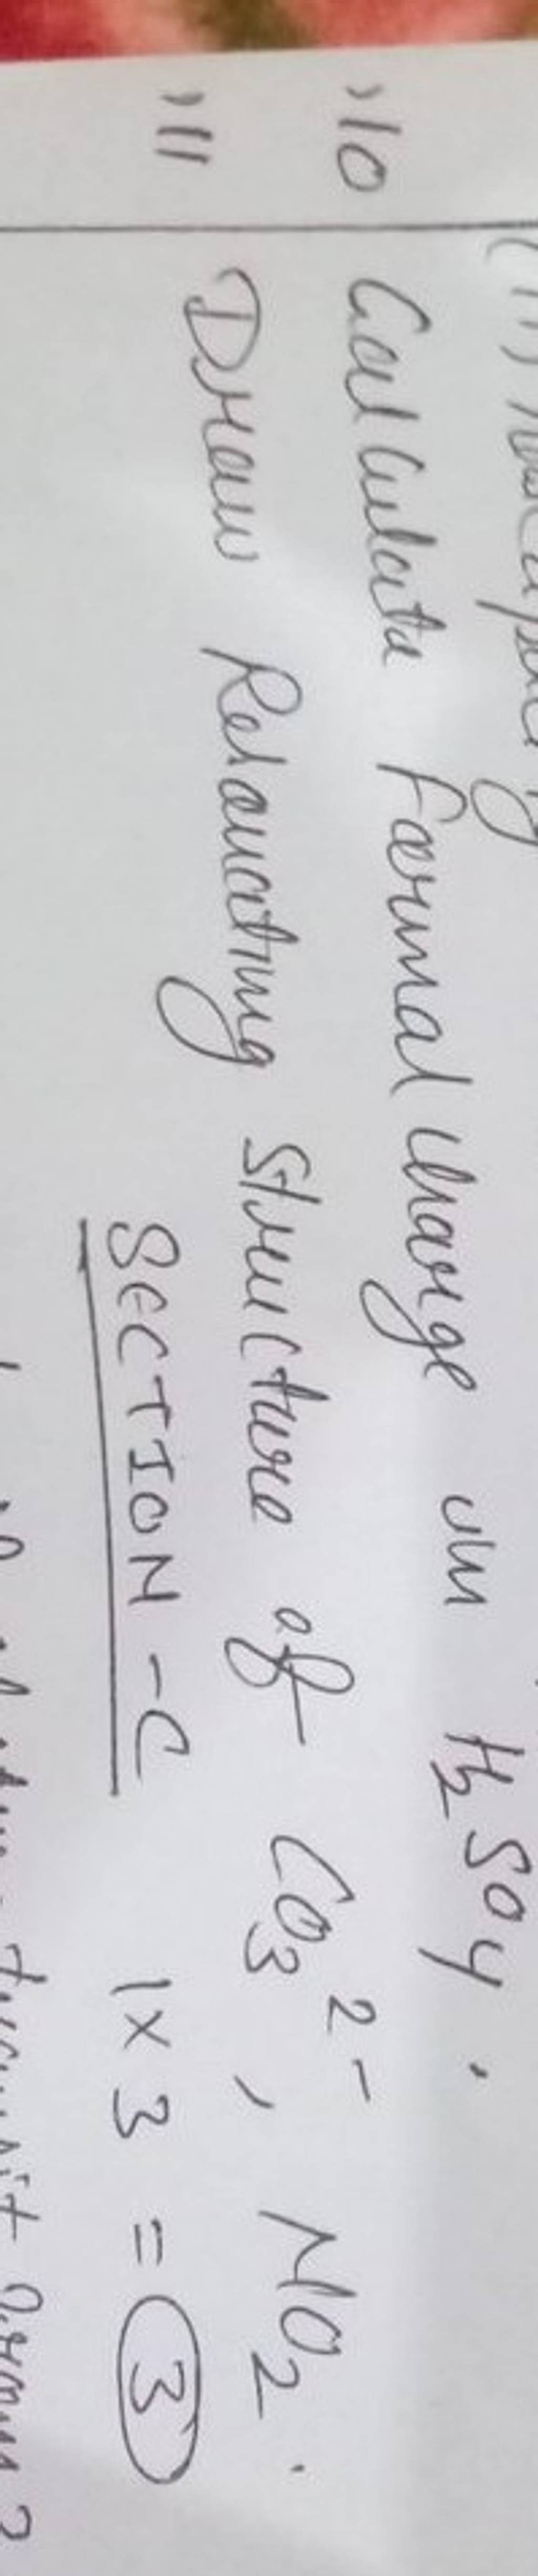 10 Calculate Formal charge in H2SO4.
11 Draw Resonating structure of CO3 2-, NO2.
SECTION-C 1x3 = 3